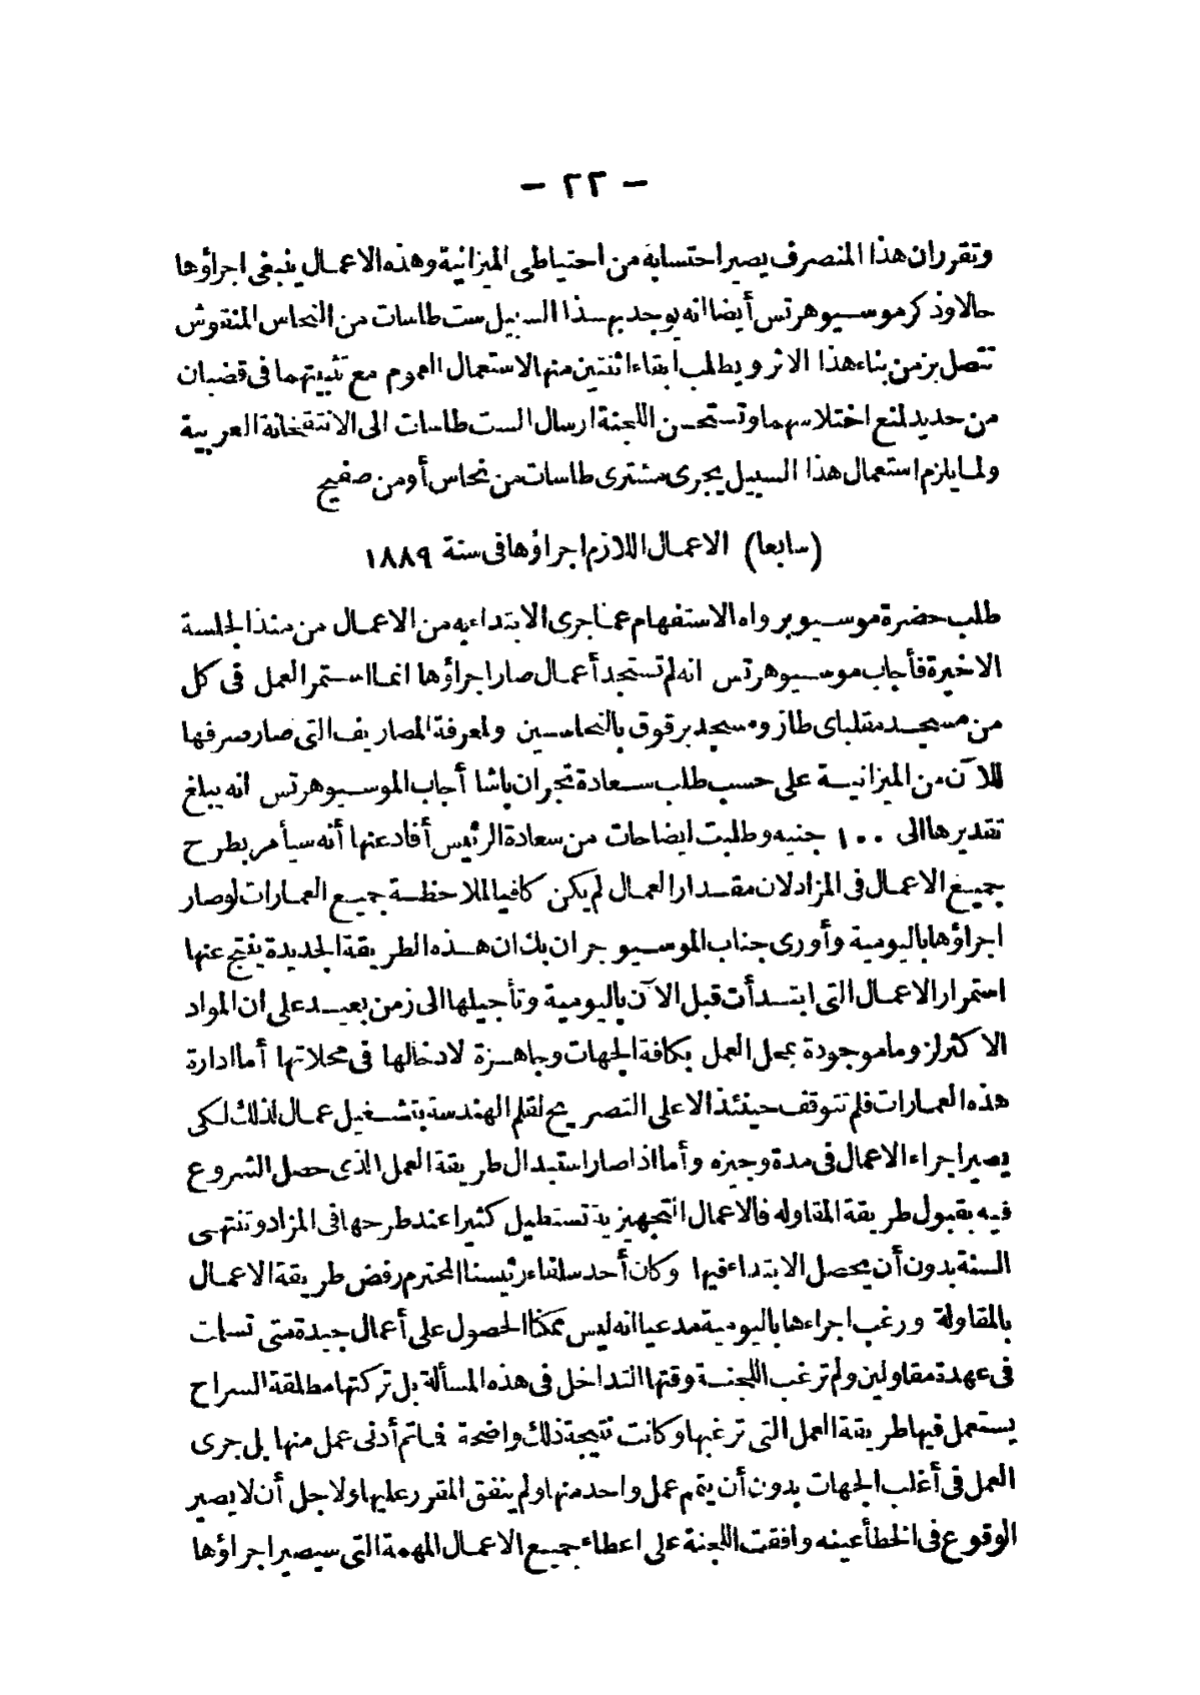 — ٢٢ —
وتقرران هذا المنصرف يصير احتسابه من احتياطى الميزانية وهذه الاعمال ينبغى اجراؤها
حالا وذكر موسيو هرتس أيضا انه يوجد بهذا السبيل ست طاسات من النحاس المنقوش
تتصل بزمن بناء هذا الاثر ويطلب ابقاء اثنتين منها لاستعمال العموم مع تثبيتهما فى قضبان
من حديد لمنع اختلاسهما وتستحسن اللجنة ارسال الست طاسات الى الانتقخانة العربية
ولما يلزم استعمال هذا السبيل يجرى مشترى طاسات من نحاس أو من صفيح
(سابعا) الاعمال اللازم اجراؤها فى سنة ١٨٨٩
طلب حضرة موسيو برواه الاستفهام عما جرى الابتداء به من الاعمال من منذ الجلسة
الاخيرة فأجاب موسيو هرتس انه لم تستجد أعمال صار اجراؤها انما استمر العمل فى كل
من مسجد مقلباى طاز ومسجد برقوق بالنحاسين ولمعرفة المصاريف التى صار صرفها
للآن من الميزانية على حسب طلب سعادة تجران باشا أجاب الموسيو هرتس انه يبلغ
تقديرها الى ١٠٠ جنيه وطلبت ايضاحات من سعادة الرئيس أفاد عنها أنه سيأمر بطرح
جميع الاعمال فى المزاد لان مقدار العمال لم يكن كافيا لملاحظة جميع العمارات لو صار
اجراؤها باليومية وأورى جناب الموسيو جران بك ان هذه الطريقة الجديدة ينتج عنها
استمرار الاعمال التى ابتدأت قبل الآن باليومية وتأجيلها الى زمن بعيد على ان المواد
الاكثر لزوما موجودة بمحل العمل بكافة الجهات وجاهزة لادخالها فى محلاتها أما ادارة
هذه العمارات فلم تتوقف حينئذ الا على التصريح لقلم الهندسة بتشغيل عمال لذلك لكى
يصير اجراء الاعمال فى مدة وجيزه وأما اذا صار استبدال طريقة العمل الذى حصل الشروع
فيه بقبول طريقة المقاوله فالاعمال التجهيزية تستطيل كثيرا عند طرحها فى المزاد وتنتهى
السنة بدون أن يحصل الابتداء فيها وكان أحد سلفاء رئيسنا المحترم رفض طريقة الاعمال
بالمقاولة ورغب اجراءها باليومية مدعيا انه ليس ممكنا الحصول على أعمال جيدة متى تسلمت
فى عهدة مقاولين ولم ترغب اللجنة وقتها التداخل فى هذه المسألة بل تركتها مطلقة السراح
يستعمل فيها طريقة العمل التى ترغبها وكانت نتيجة ذلك واضحة فما تم أدنى عمل منها بل جرى
العمل فى أغلب الجهات بدون أن يتم عمل واحد منها ولم ينفق المقرر عليها ولاجل أن لا يصير
الوقوع فى الخطأ عينه وافقت اللجنة على اعطاء جميع الاعمال المهمة التى سيصير اجراؤها